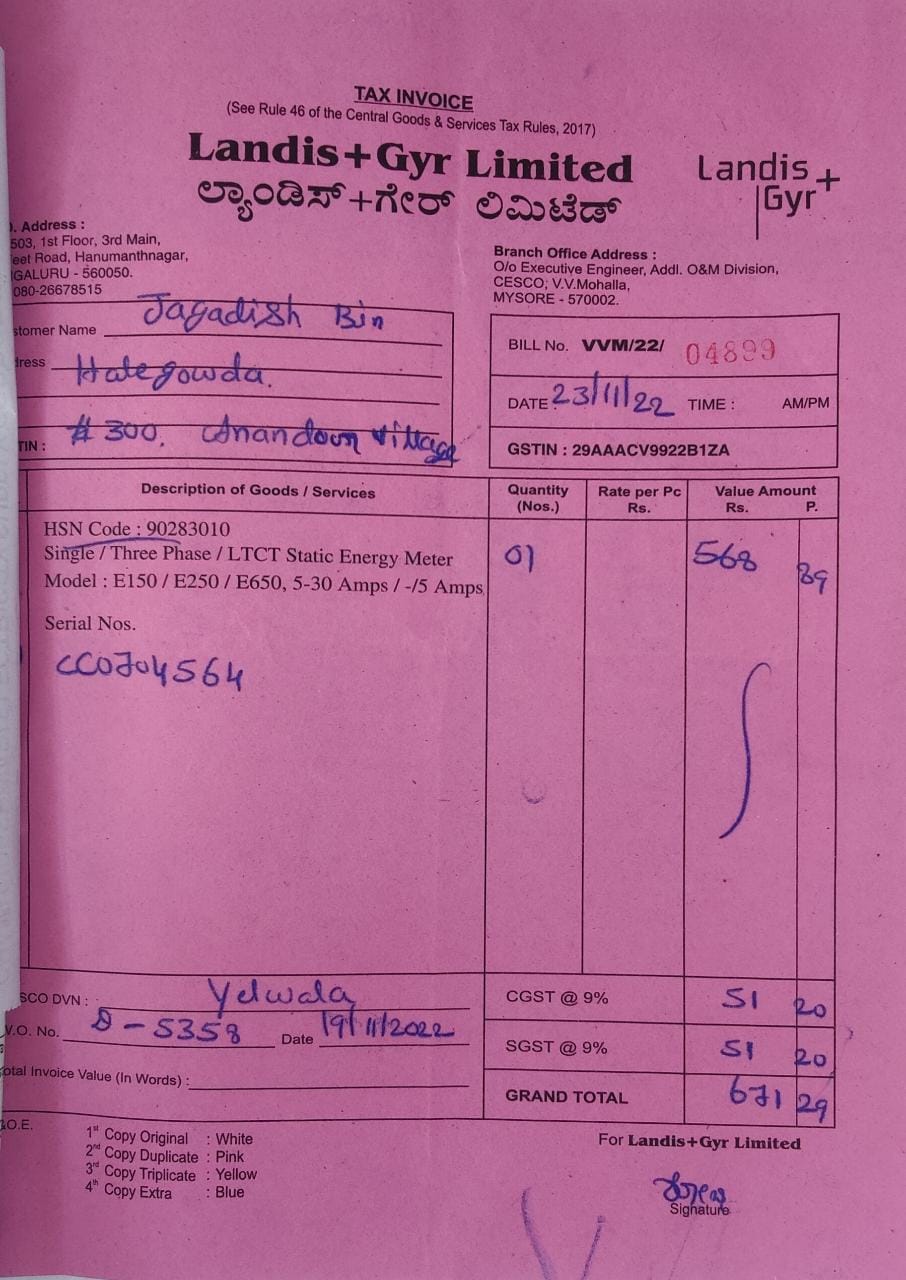 TAX INVOICE
(See Rule 46 of the Central Goods & Services Tax Rules, 2017)
Landis+Gyr Limited
ಲ್ಯಾಂಡಿಸ್+ಗೇರ್ ಲಿಮಿಟೆಡ್
Landis+
Gyr
. Address :
503, 1st Floor, 3rd Main,
eet Road, Hanumanthnagar,
GALURU - 560050.
080-26678515
Branch Office Address :
O/o Executive Engineer, Addl. O&M Division,
CESCO, V.V.Mohalla,
MYSORE - 570002.
stomer Name Jagadish Bin
ress Hategowda.
TIN : # 300. Anandoor Village
BILL No. VVM/22/ 04899
DATE : 23/11/22 TIME : AM/PM
GSTIN : 29AAACV9922B1ZA
Description of Goods / Services Quantity (Nos.) Rate per Pc Rs. Value Amount Rs. P.
HSN Code : 90283010
Single / Three Phase / LTCT Static Energy Meter 01 568 89
Model : E150 / E250 / E650, 5-30 Amps / -/5 Amps
Serial Nos.
CC0704564
SCO DVN : Yelwala
V.O. No. D-5358 Date 19/11/2022
otal Invoice Value (In Words) :
CGST @ 9% 51 20
SGST @ 9% 51 20
GRAND TOTAL 671 29
.O.E.
1st Copy Original : White
2nd Copy Duplicate : Pink
3rd Copy Triplicate : Yellow
4th Copy Extra : Blue
For Landis+Gyr Limited
Signature